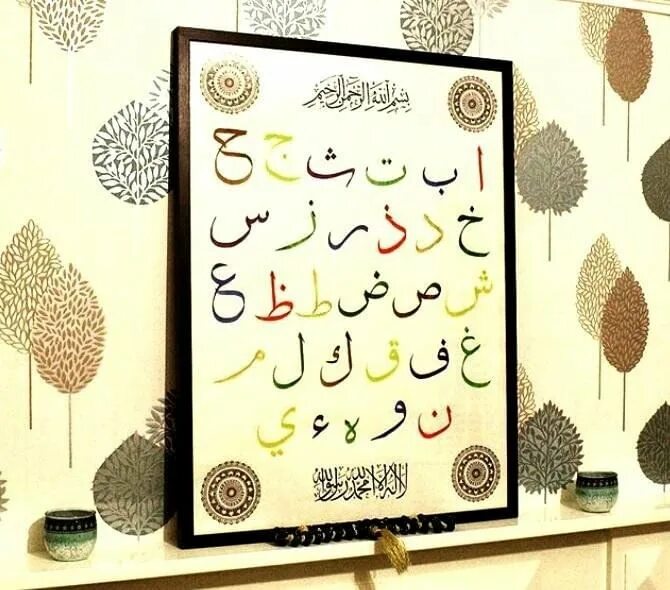 بسم الله الرحمن الرحيم
ا ب ت ث ج ح
خ د ذ ر ز س
ش ص ض ط ظ ع
غ ف ق ك ل م
ن و ه ء ي
لا إله إلا الله محمد رسول الله